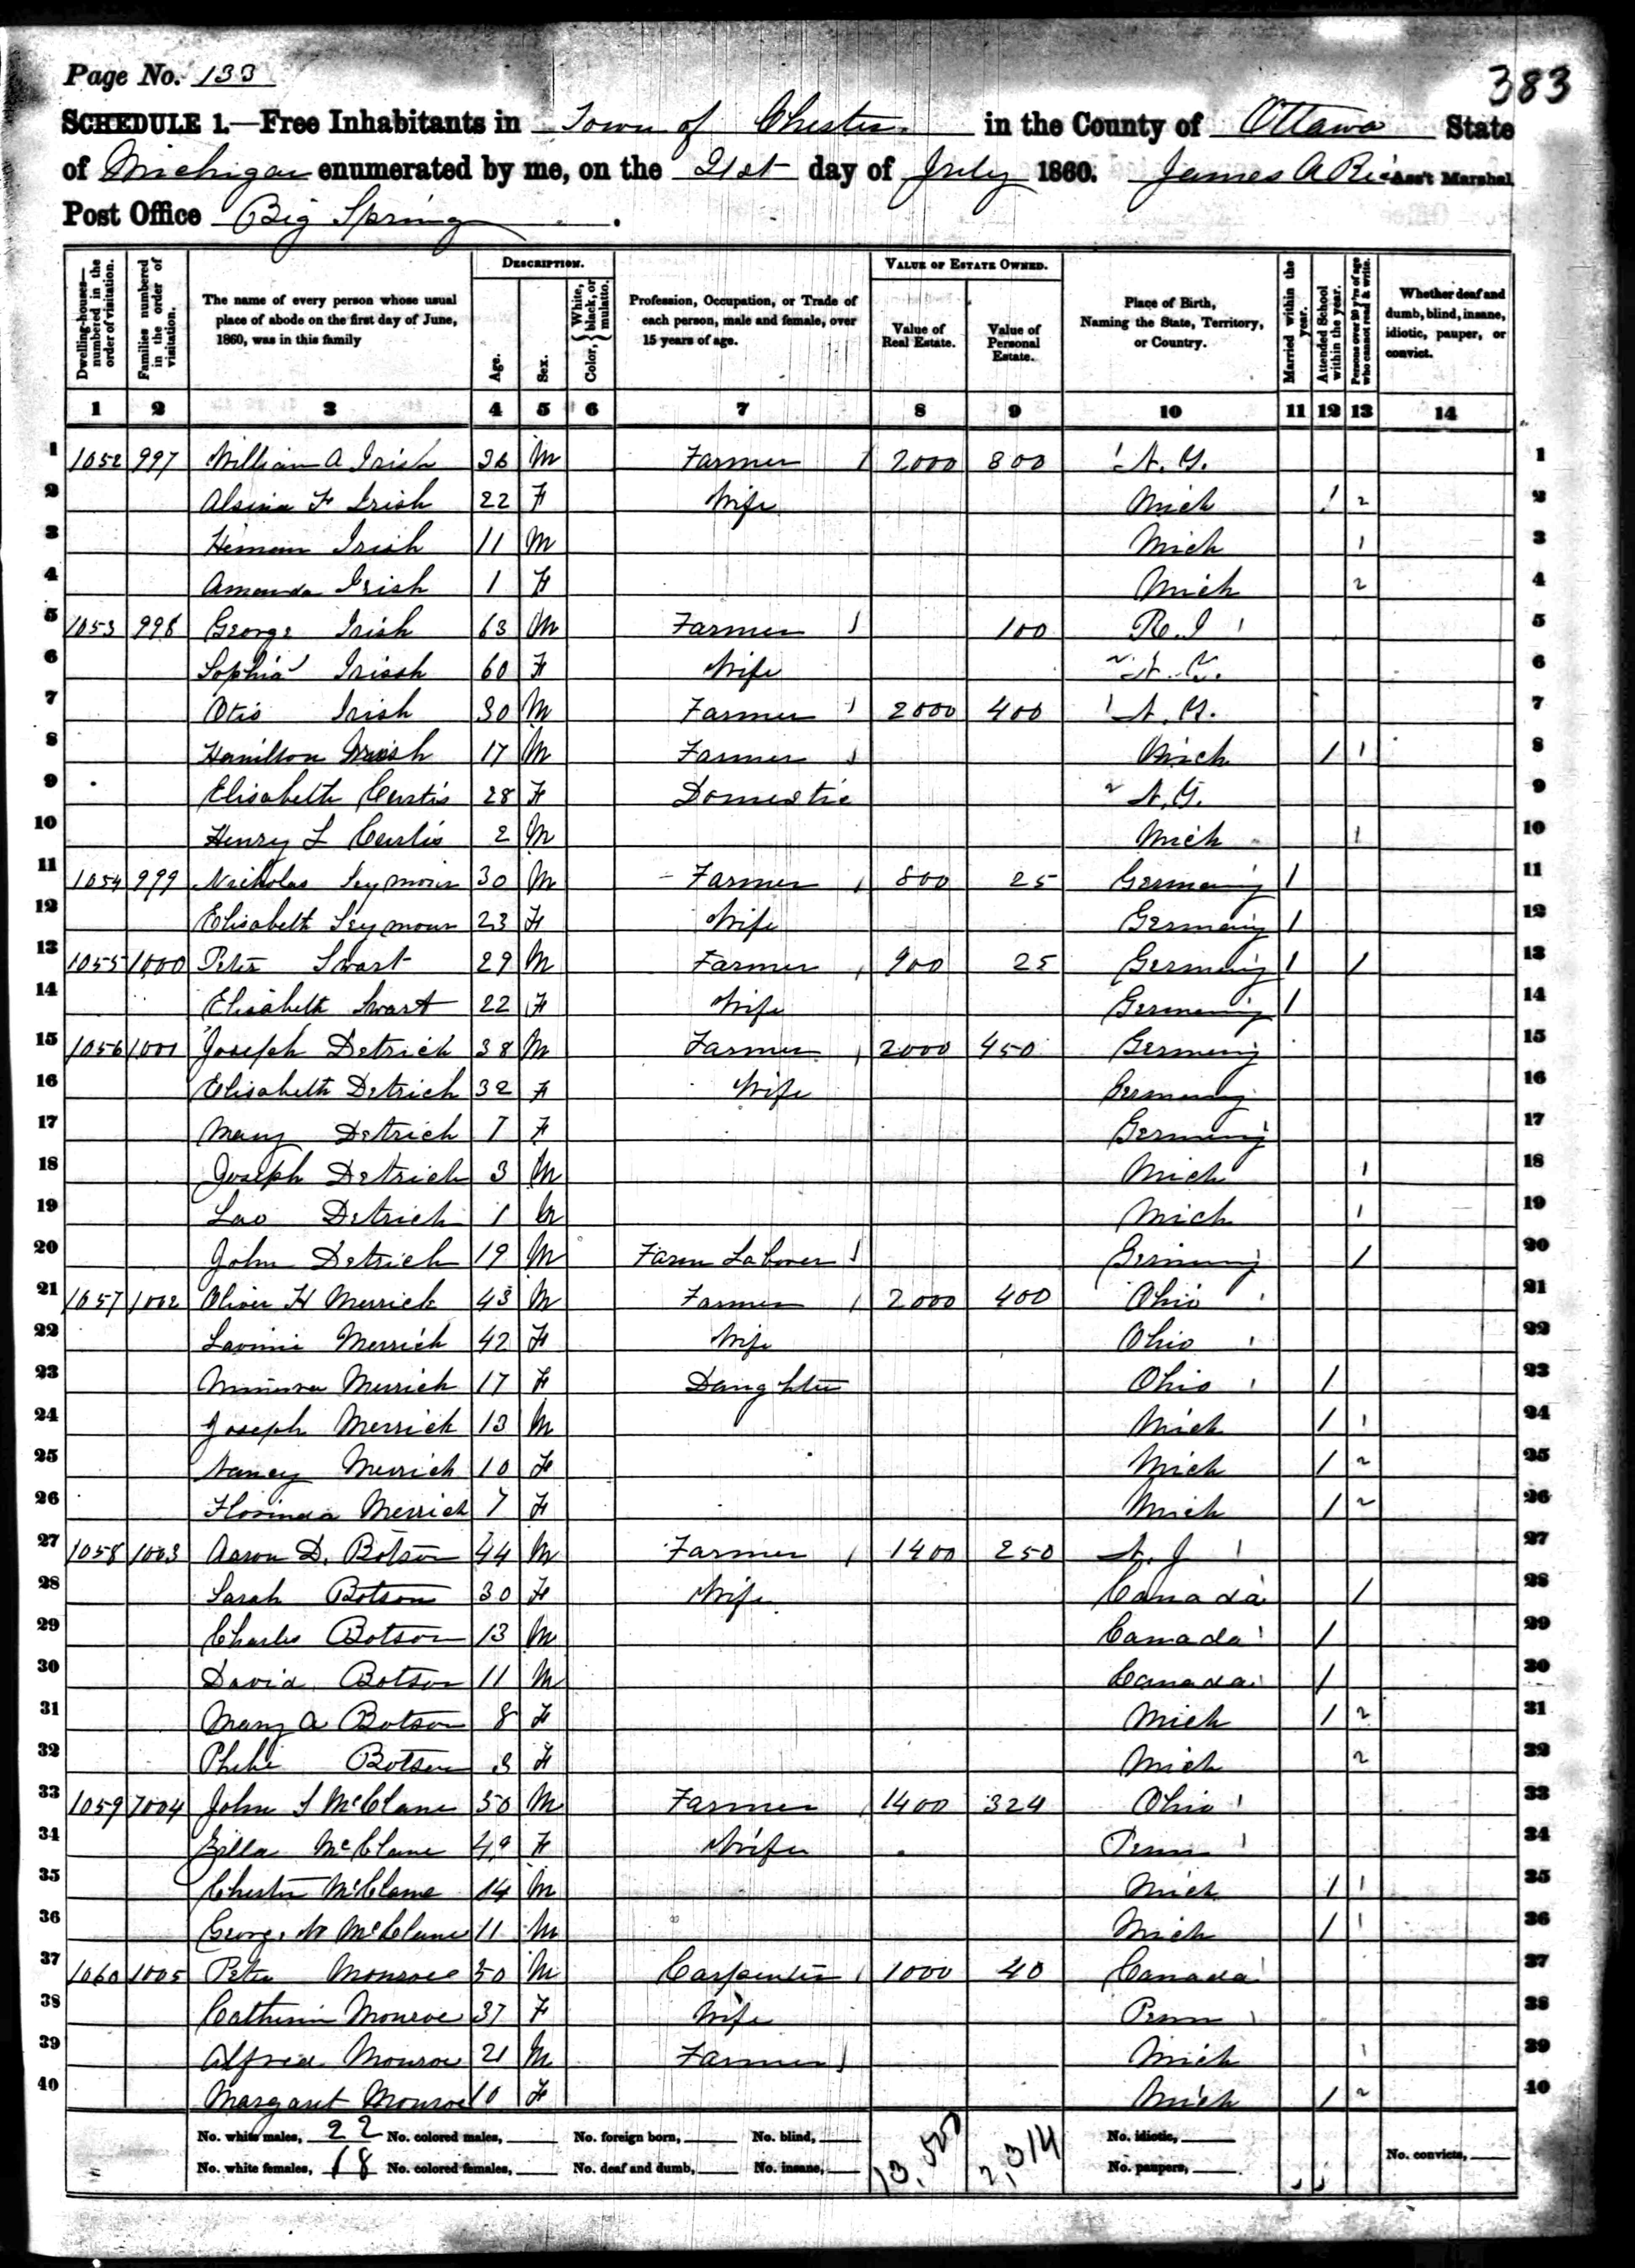 Page No. 133
383
SCHEDULE 1.—Free Inhabitants in Town of Chester in the County of Ottawa State
of Michigan enumerated by me, on the 21st day of July 1860. James A Ass't Marshal
Post Office Big Spring.
Dwelling-houses—numbered in the order of visitation. Families numbered in the order of visitation. The name of every person whose usual place of abode on the first day of June, 1860, was in this family DESCRIPTION. Age. Sex. Color, {White, black, or mulatto. Profession, Occupation, or Trade of each person, male and female, over 15 years of age. VALUE OF ESTATE OWNED. Value of Real Estate. Value of Personal Estate. Place of Birth, Naming the State, Territory, or Country. Married within the year. Attended School within the year. Persons over 20 y'rs of age who cannot read & write. Whether deaf and dumb, blind, insane, idiotic, pauper, or convict.
1 2 3 4 5 6 7 8 9 10 11 12 13 14
1 1052 997 William A Irish 36 M Farmer 1 2000 800 1 N.Y. 1
2 Alsina F Irish 22 F Wife Mich 1 2 2
3 Heman Irish 11 M Mich 1 3
4 Amanda Irish 1 F Mich 2 4
5 1053 998 George Irish 63 M Farmer 1 100 R.I 1 5
6 Sophia Irish 60 F Wife 2 N.Y. 6
7 Otis Irish 30 M Farmer 1 2000 400 1 N.Y. 7
8 Hamilton Irish 17 M Farmer 1 Mich 1 1 8
9 Elisabeth Curtis 28 F Domestic 2 N.Y. 9
10 Henry L Curtis 2 M Mich 1 10
11 1054 999 Nicholas Seymour 30 M Farmer 1 800 25 Germany 1 11
12 Elisabeth Seymour 23 F Wife Germany 1 12
13 1055 1000 Peter Swart 29 M Farmer 1 900 25 Germany 1 1 13
14 Elisabeth Swart 22 F Wife Germany 1 14
15 1056 1001 Joseph Detrich 38 M Farmer 1 2000 450 Germany 15
16 Elisabeth Detrich 32 F Wife Germany 16
17 Mary Detrich 7 F Germany 17
18 Joseph Detrich 3 M Mich 1 18
19 Leo Detrich 1 M Mich 1 19
20 John Detrich 19 M Farm Laborer 1 Germany 1 20
21 1057 1002 Oliver H Merrick 43 M Farmer 1 2000 400 Ohio 1 21
22 Lavinia Merrick 42 F Wife Ohio 1 22
23 Minerva Merrick 17 F Daughter Ohio 1 1 23
24 Joseph Merrick 13 M Mich 1 1 24
25 Nancy Merrick 10 F Mich 1 2 25
26 Florinda Merrick 7 F Mich 1 2 26
27 1058 1003 Aaron D. Botson 44 M Farmer 1 1400 250 N.J 1 27
28 Sarah Botson 30 F Wife Canada 1 28
29 Charles Botson 13 M Canada 1 1 29
30 David Botson 11 M Canada 1 1 30
31 Mary A Botson 8 F Mich 1 2 31
32 Phebe Botson 3 F Mich 2 32
33 1059 1004 John S McClane 50 M Farmer 1 1400 324 Ohio 1 33
34 Zilla McClane 49 F Wife Penn 1 34
35 Chester McClane 14 M Mich 1 1 35
36 George McClane 11 M Mich 1 1 36
37 1060 1005 Peter Monroe 50 M Carpenter 1 1000 40 Canada 1 37
38 Catherin Monroe 37 F Wife Penn 1 38
39 Alfred Monroe 21 M Farmer 1 Mich 1 39
40 Margaret Monroe 10 F Mich 1 2 40
No. white males, 22 No. colored males, No. foreign born, No. blind, 13,500 2,314 No. idiotic,
No. white females, 18 No. colored females, No. deaf and dumb, No. insane, No. paupers, No. convicts,